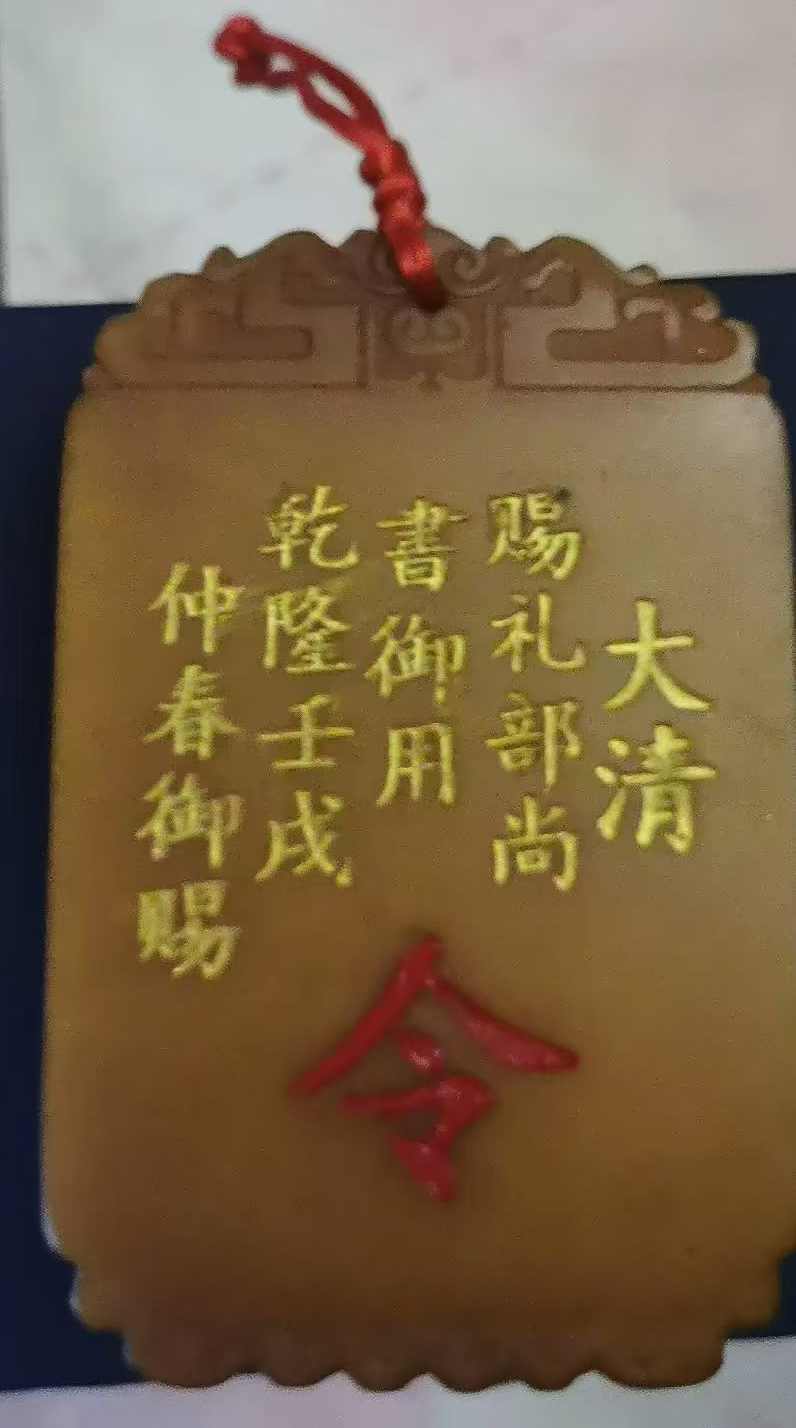 大清
赐礼部尚
書御用
乾隆壬戌
仲春御赐
令